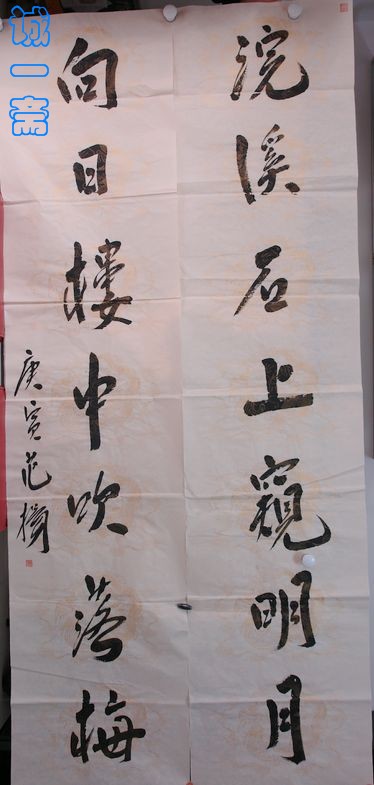 浣溪石上窺明月
向日樓中吹落梅
庚寅范
诚一斋